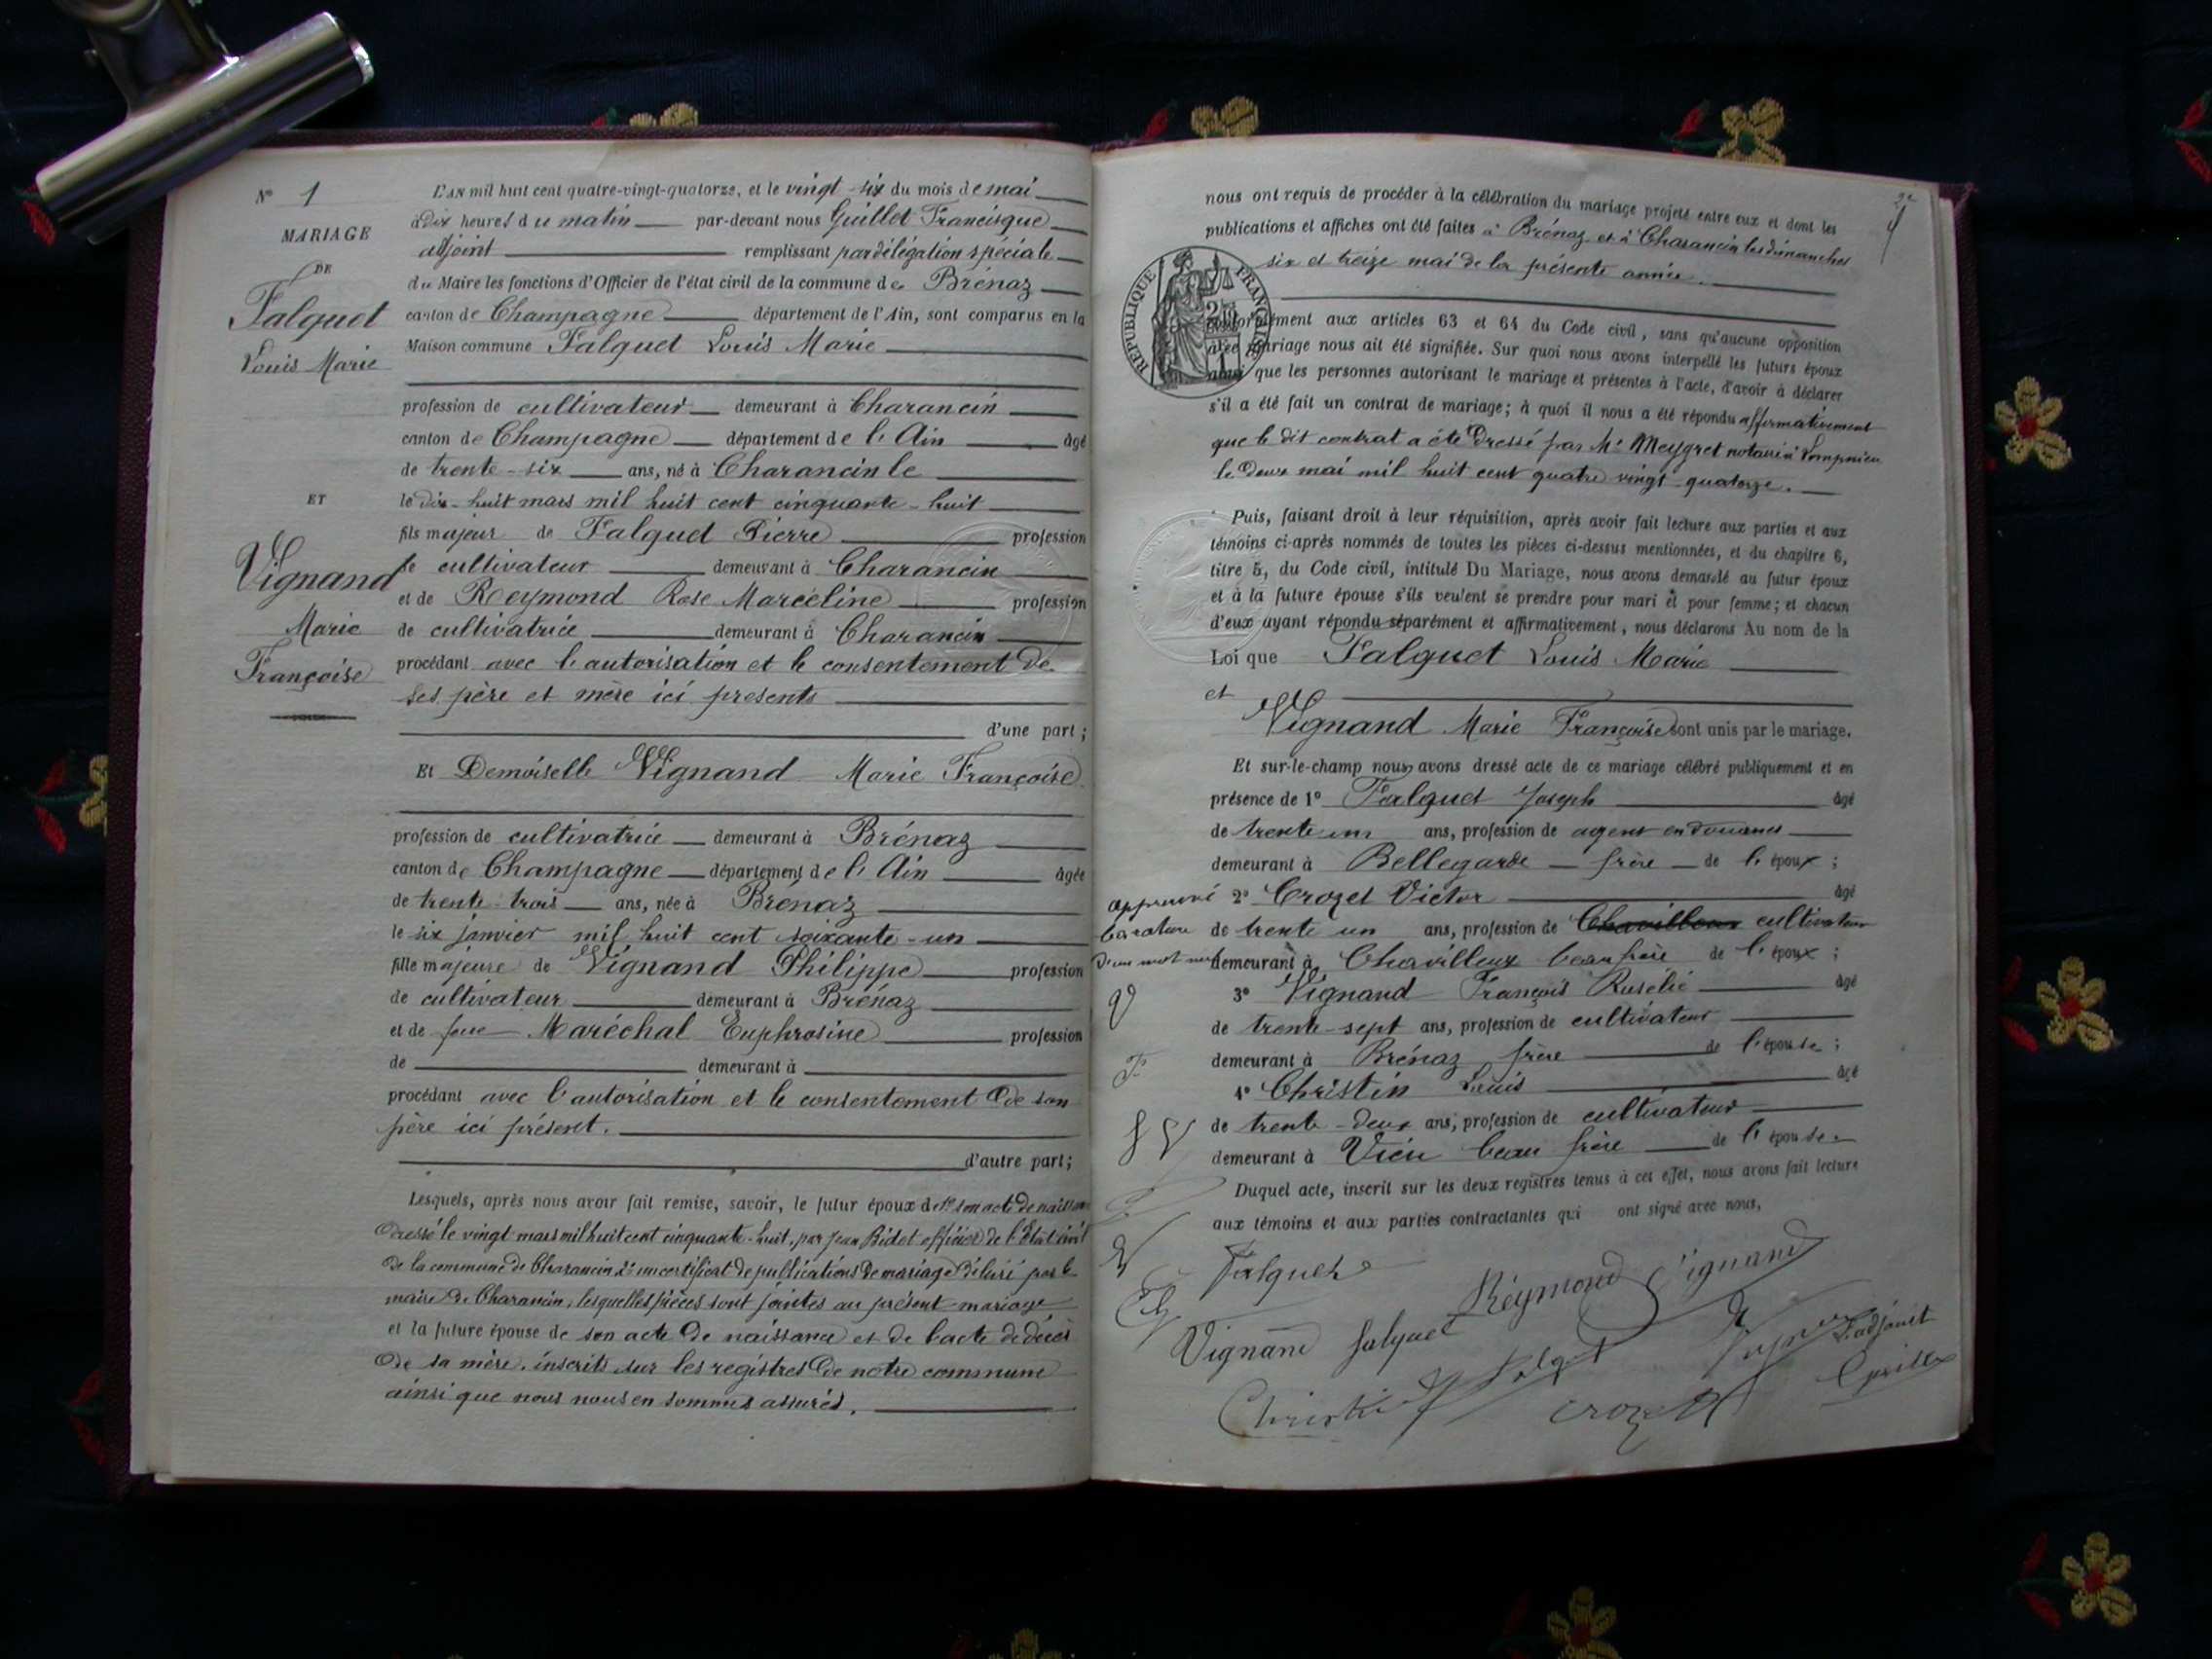 N° 1
MARIAGE
DE
Falquet
Louis Marie
ET
Vignand
Marie
Françoise
L'AN mil huit cent quatre-vingt-quatorze, et le vingt-six du mois de mai
à dix heures du matin par-devant nous Guillet Francisque
adjoint remplissant par délégation spéciale
du Maire les fonctions d'Officier de l'état civil de la commune de Brénaz
canton de Champagne département de l'Ain, sont comparus en la
Maison commune Falquet Louis Marie
profession de cultivateur demeurant à Charancin
canton de Champagne département de l'Ain âgé
de trente-six ans, né à Charancin le
le dix-huit mars mil huit cent cinquante-huit
fils majeur de Falquet Pierre profession
de cultivateur demeurant à Charancin
et de Reymond Rose Marceline profession
de cultivatrice demeurant à Charancin
procédant avec l'autorisation et le consentement de
ses père et mère ici présents
d'une part;
Et Demoiselle Vignand Marie Françoise
profession de cultivatrice demeurant à Brénaz
canton de Champagne département de l'Ain âgée
de trente-trois ans, née à Brénaz
le six janvier mil huit cent soixante-un
fille majeure de Vignand Philippe profession
de cultivateur demeurant à Brénaz
et de feue Maréchal Euphrosine profession
de demeurant à
procédant avec l'autorisation et le consentement de son
père ici présent.
d'autre part;
Lesquels, après nous avoir fait remise, savoir, le futur époux de 1° son acte de naissance
dressé le vingt mars mil huit cent cinquante-huit, par Jean Bidet officier de l'Etat civil
de la commune de Charancin 2° un certificat de publications de mariage délivré par le
maire de Charancin, lesquelles pièces sont jointes au présent mariage
et la future épouse de son acte de naissance et de l'acte de décès
de sa mère, inscrits sur les registres de notre commune
ainsi que nous nous en sommes assurés.
nous ont requis de procéder à la célébration du mariage projeté entre eux et dont les
publications et affiches ont été faites à Brénaz et à Charancin les dimanches
six et treize mai de la présente année.
REPUBLIQUE FRANÇAISE
conformément aux articles 63 et 64 du Code civil, sans qu'aucune opposition
mariage nous ait été signifiée. Sur quoi nous avons interpellé les futurs époux
ainsi que les personnes autorisant le mariage et présentes à l'acte, d'avoir à déclarer
s'il a été fait un contrat de mariage; à quoi il nous a été répondu affirmativement
que le dit contrat a été dressé par Me Meygret notaire à Lompnieu
le deux mai mil huit cent quatre vingt quatorze.
Puis, faisant droit à leur réquisition, après avoir fait lecture aux parties et aux
témoins ci-après nommés de toutes les pièces ci-dessus mentionnées, et du chapitre 6,
titre 5, du Code civil, intitulé Du Mariage, nous avons demandé au futur époux
et à la future épouse s'ils veulent se prendre pour mari et pour femme; et chacun
d'eux ayant répondu séparément et affirmativement, nous déclarons Au nom de la
Loi que Falquet Louis Marie
et
Vignand Marie Françoise sont unis par le mariage.
Et sur-le-champ nous avons dressé acte de ce mariage célébré publiquement et en
présence de 1° Falquet Joseph âgé
de trente un ans, profession de agent en douanes
demeurant à Bellegarde frère de l'époux;
approuvé 2° Crozet Victor âgé
la rature de trente un ans, profession de Chavilleux cultivateur
d'un mot nul demeurant à Chavilleux beau frère de l'époux;
3° Vignand François Rusélie âgé
de trente-sept ans, profession de cultivateur
demeurant à Brénaz frère de l'épouse;
4° Christin Louis âgé
de trente-deux ans, profession de cultivateur
demeurant à Vieu beau frère de l'épouse.
Duquel acte, inscrit sur les deux registres tenus à cet effet, nous avons fait lecture
aux témoins et aux parties contractantes qui ont signé avec nous,
Falquet
Reymond Vignand
Vignand falquet
L'adjoint
Christin falquet crozet Guillet